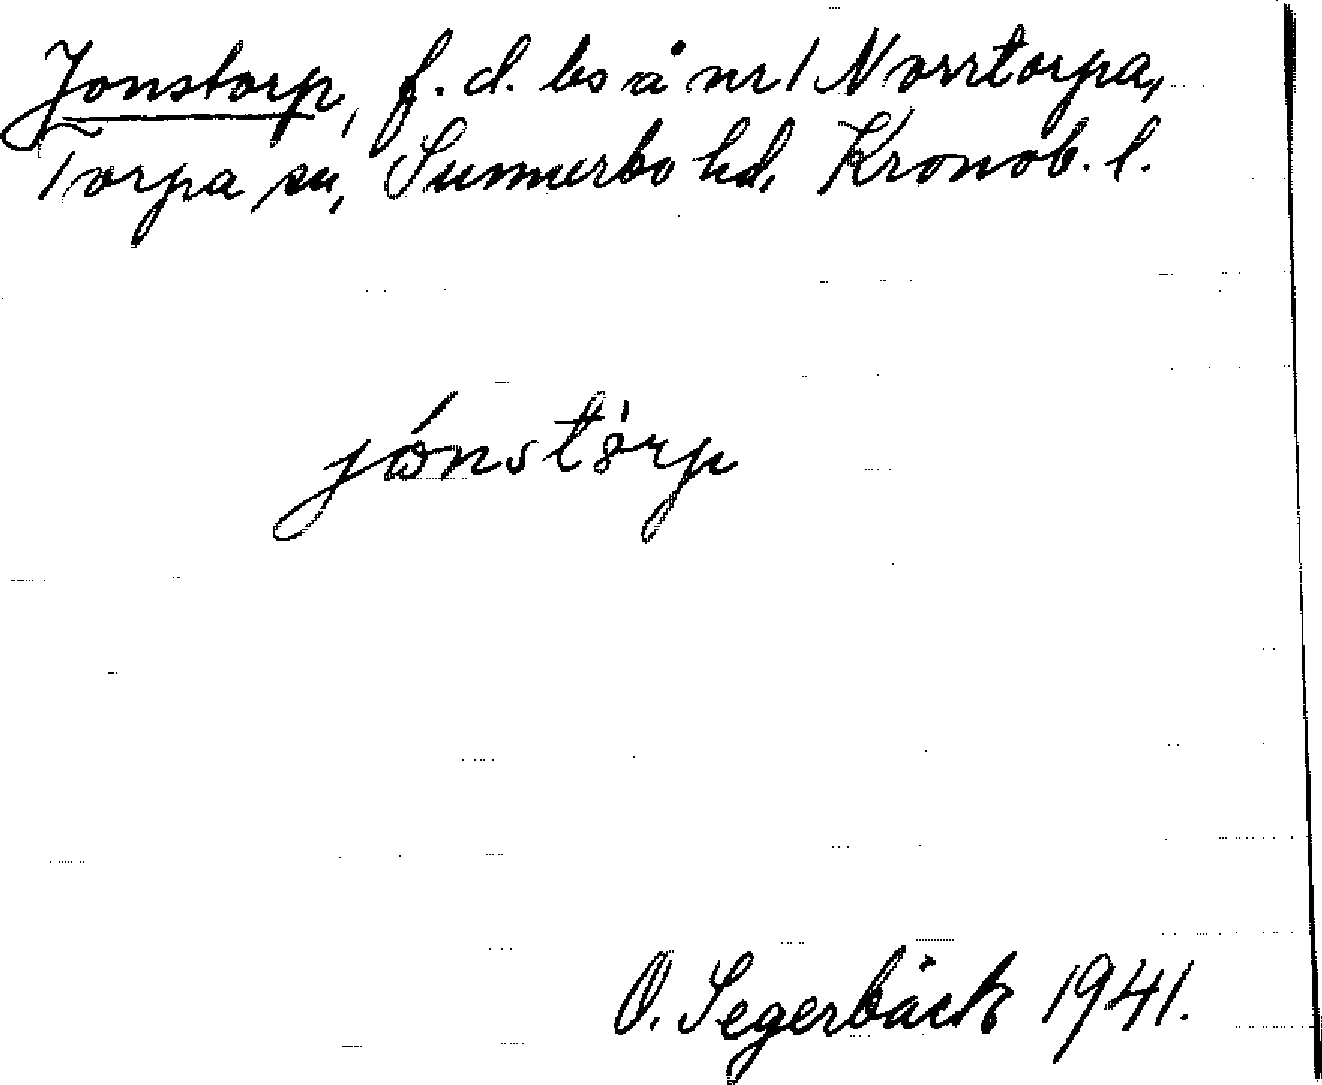 Jonstorp, f. d. bs å nr 1 Norrtorpa,
Torpa sn, Sunnerbo hd, Kronob. l.
jónstòrp
O. Segerbäck 1941.